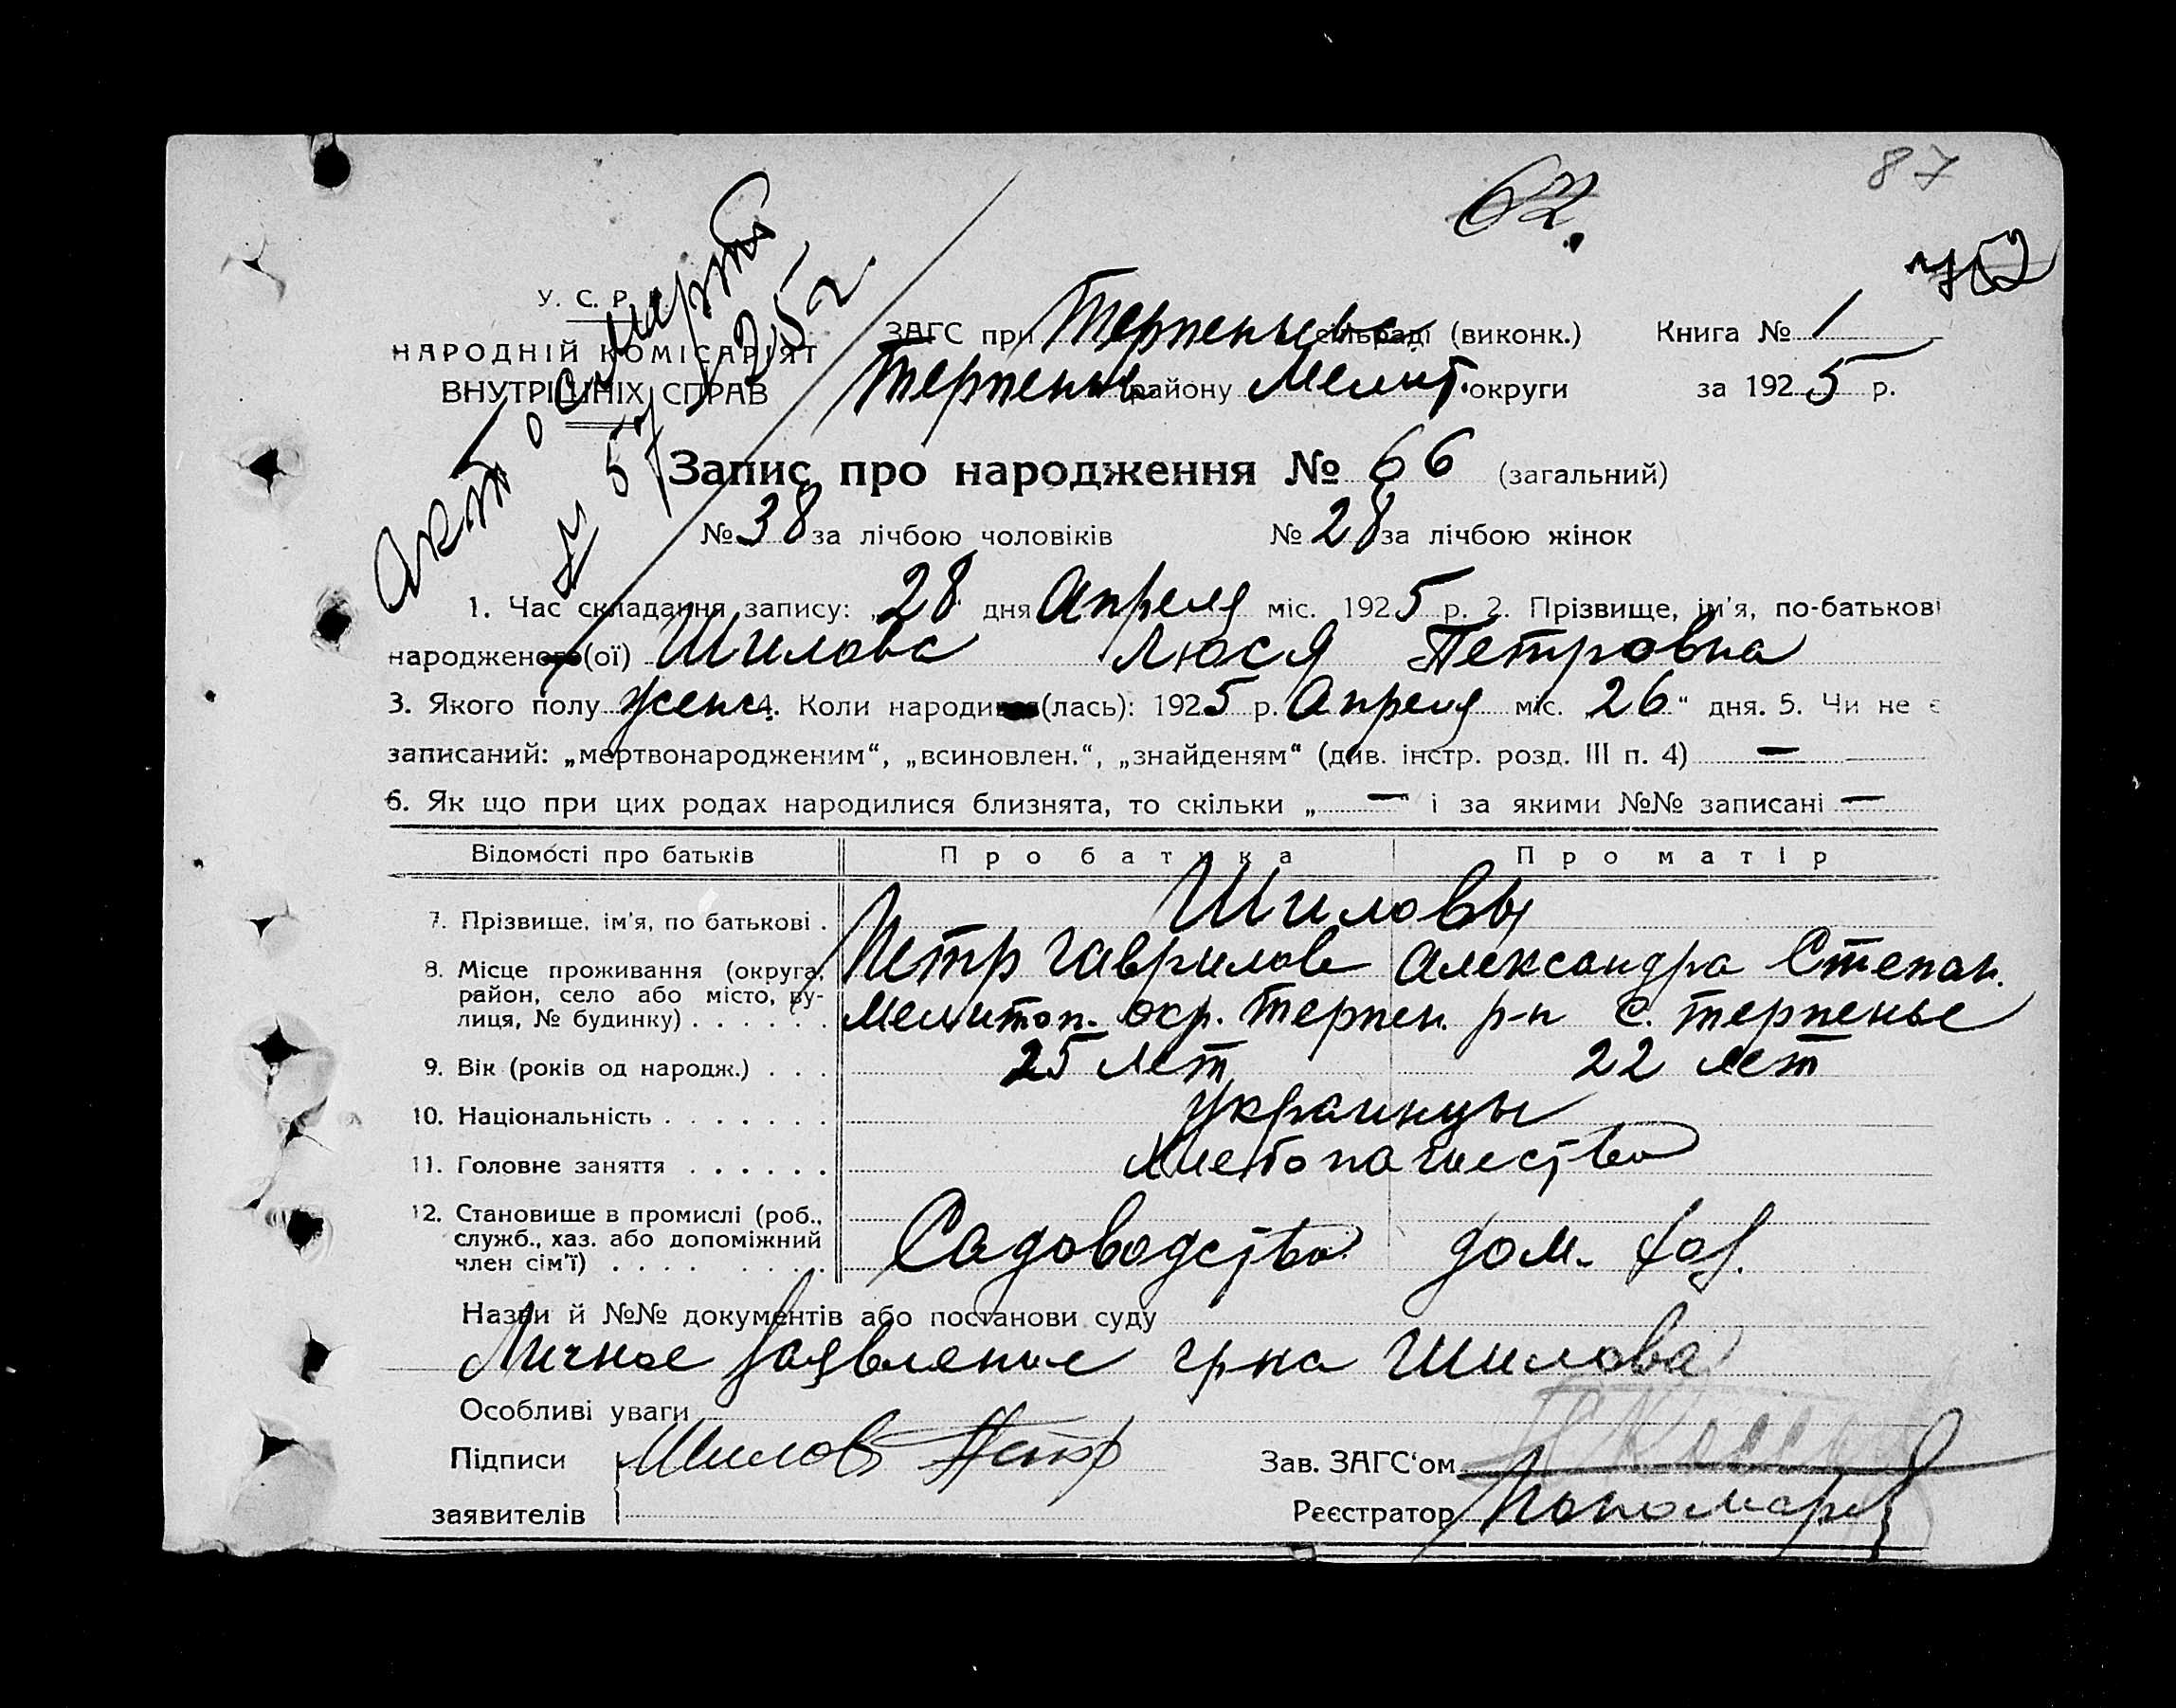 87
62.
У. С. Р. Р.
НАРОДНІЙ КОМІСАРІЯТ
ВНУТРІШНІХ СПРАВ
Акт о смерти
№ 57
ЗАГС при Терпеньев сільраді (виконк.) Книга № 1
Терпенье району Мелит. округи за 1925 р.
Запис про народження № 66 (загальний)
№ 38 за лічбою чоловіків № 28 за лічбою жінок
1. Час складання запису: „28 дня Апреля міс. 1925 р. 2. Прізвище, ім'я, по-батькові
народженого(ої) Шилова Люся Петровна
3. Якого полу женс. 4. Коли народи(лась): 1925 р. Апреля міс. „26“ дня. 5. Чи не є
записаний: „мертвонародженим“, „всиновлен.“, „знайденям“ (див. інстр. розд. III п. 4) —
6. Як що при цих родах народилися близнята, то скільки „—“ і за якими №№ записані —
Відомости про батьків Про батька Про матір
7. Прізвище, ім'я, по батькові . Шиловы
Петр Гаврилов Александра Степан.
8. Місце проживання (округа,
район, село або місто, ву-
лиця, № будинку) . . . . . . Мелитоп. окр. Терпен. р-н с. Терпенье
9. Вік (років од народж.) . . . 25 лет 22 лет
10. Національність . . . . . . . Украинцы
11. Головне заняття . . . . . . Хлебопашество
12. Становище в промислі (роб.,
служб., хаз. або допоміжний
член сім'ї) . . . . . . . . Садоводство дом. хоз.
Назви й №№ документів або постанови суду
Личное заявление гр-на Шилова
Особливі уваги
Підписи Шилов Петр Зав. ЗАГС'ом
заявителів Реєстратор Пономарев